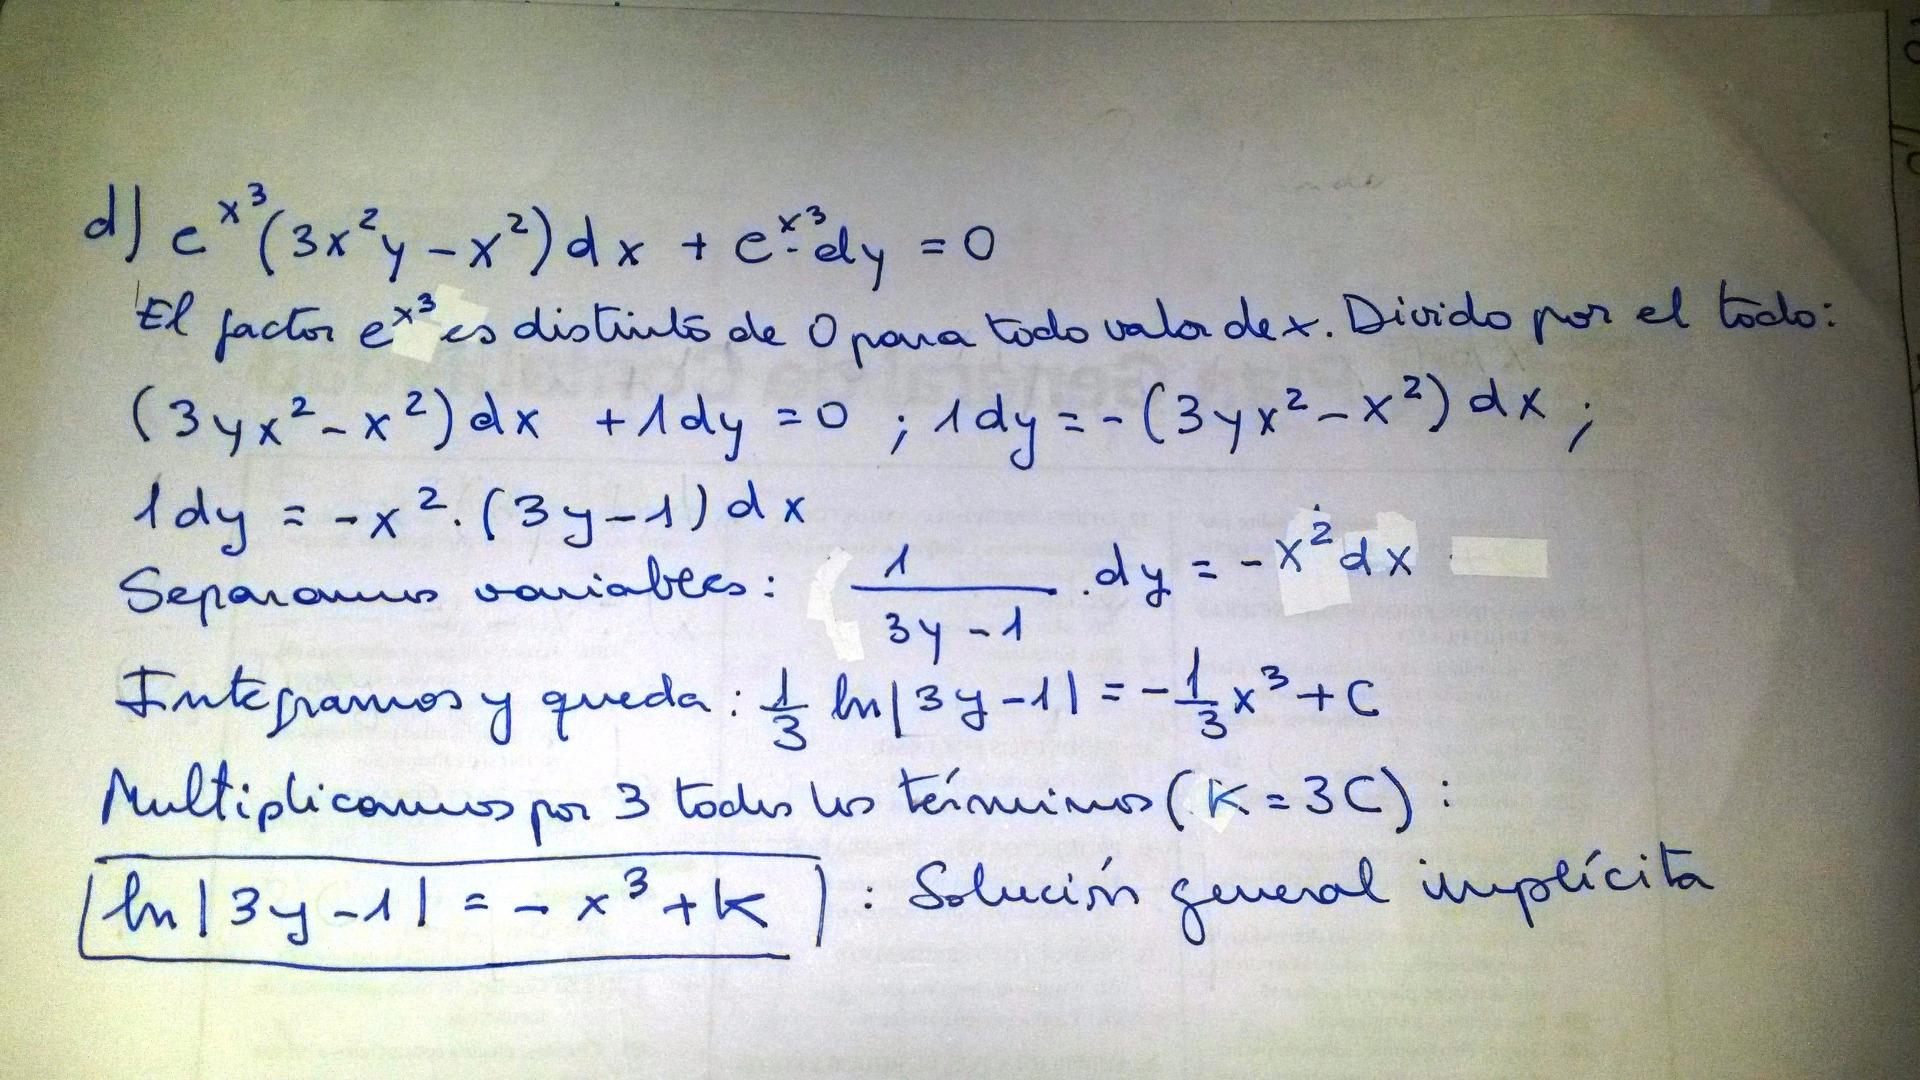 d) e^{x^3}(3x²y - x²)dx + e^{x^3}·dy = 0
El factor e^{x^3} es distinto de 0 para todo valor de x. Divido por el todo:
(3yx² - x²)dx + 1dy = 0 ; 1dy = -(3yx² - x²)dx ;
1dy = -x²·(3y-1)dx
Separamos variables: \frac{1}{3y-1}·dy = -x²dx
Integramos y queda: \frac{1}{3} ln|3y-1| = -\frac{1}{3}x³ + C
Multiplicamos por 3 todos los términos (K = 3C) :
ln|3y-1| = -x³ + K : Solución general implícita